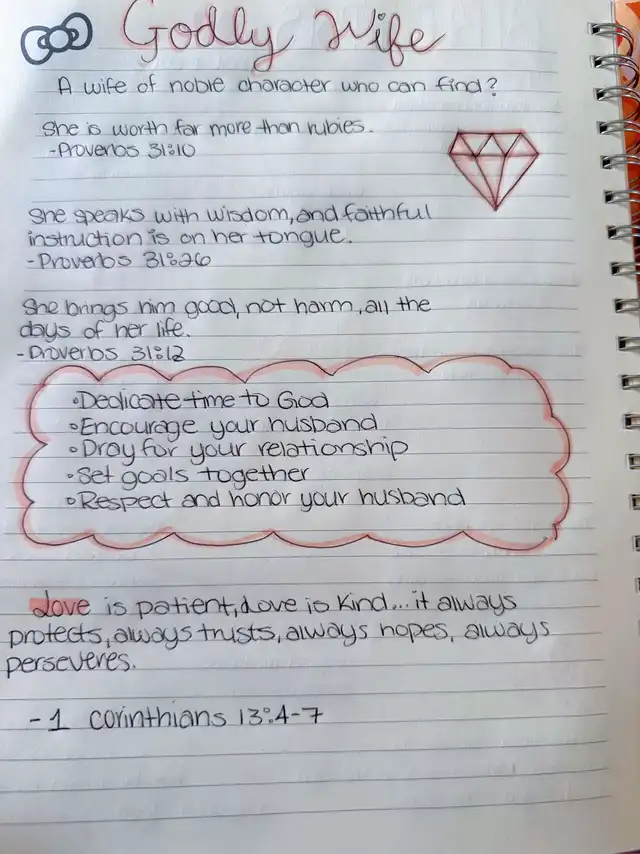 Godly Wife
A wife of noble character who can find?
She is worth far more than rubies.
-Proverbs 31:10
She speaks with wisdom, and faithful
instruction is on her tongue.
-Proverbs 31:26
She brings him good, not harm, all the
days of her life.
-Proverbs 31:12
•Dedicate time to God
•Encourage your husband
•Pray for your relationship
•Set goals together
•Respect and honor your husband
Love is patient, Love is kind... it always
protects, always trusts, always hopes, always
perseveres.
-1 corinthians 13:4-7